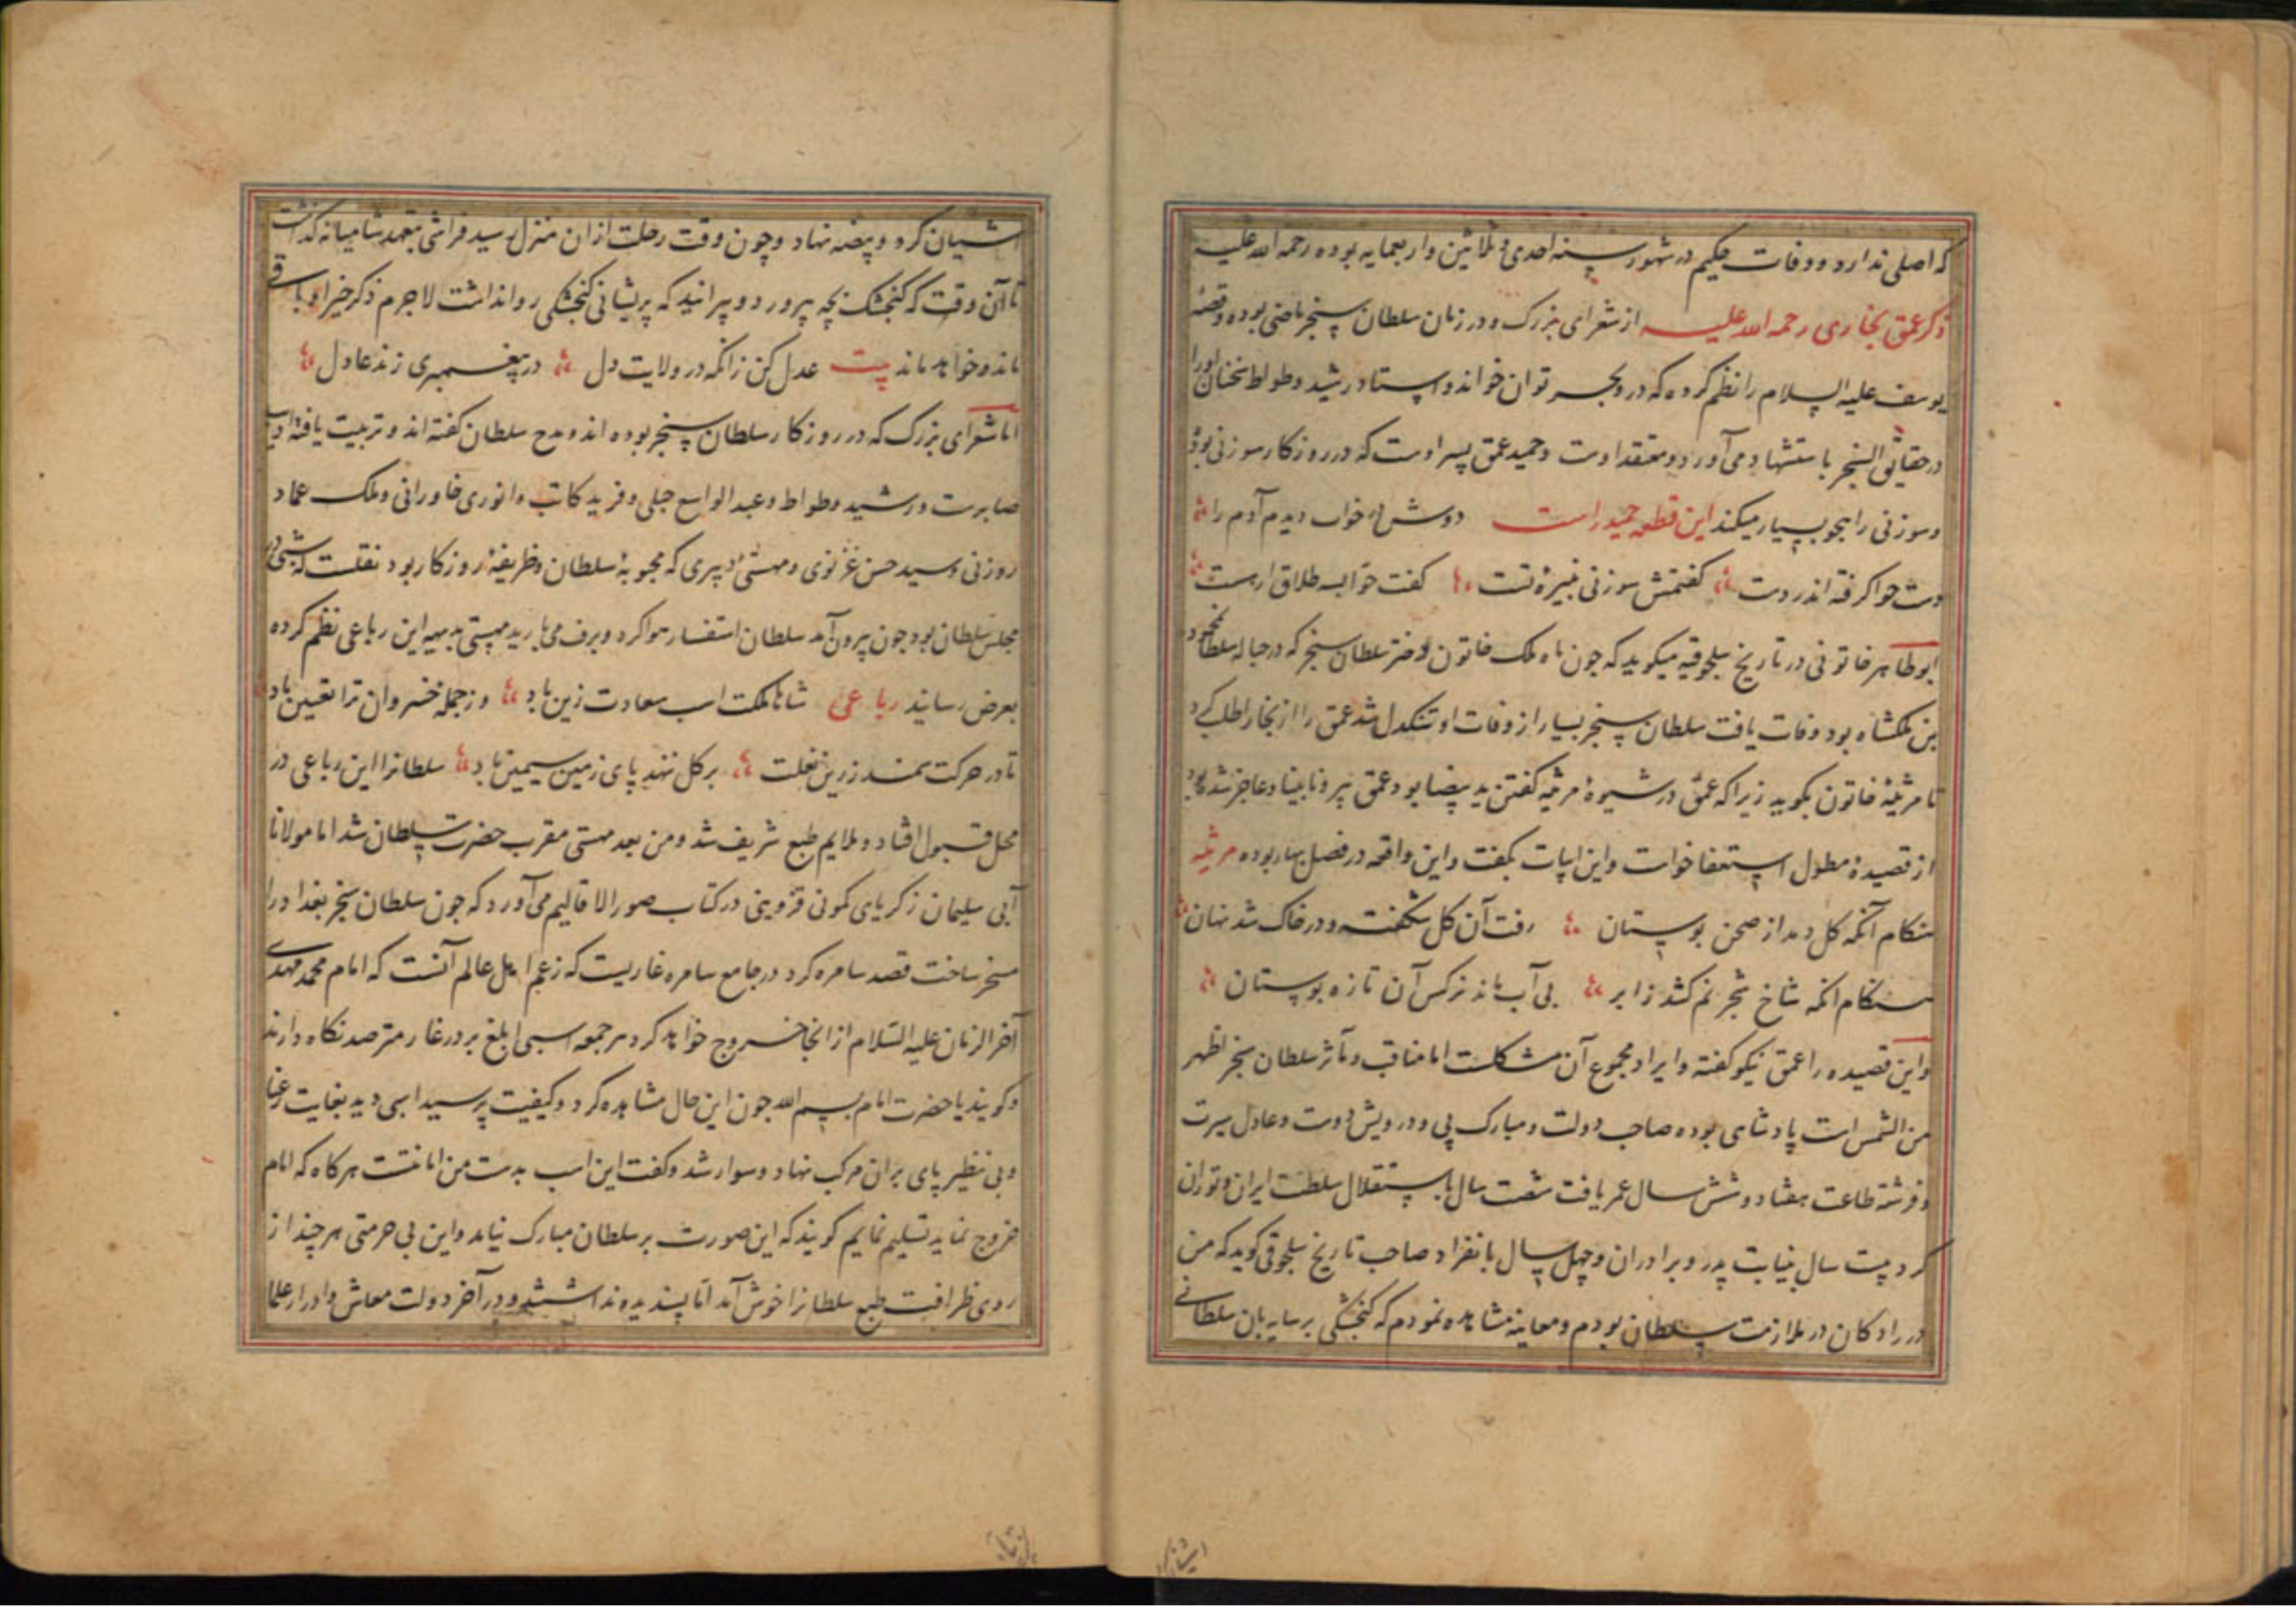 که اصلی ندارد و وفات حکیم در شهور سنه احدی و ثلاثین و اربعمایه بوده رحمه الله علیه
ذکر عمق بخاری رحمه الله علیه از شعرای بزرک و در زمان سلطان سنجر ماضی بوده و قصهٔ
یوسف علیه السلام را نظم کرده که در دو بحر توان خواند و استاد رشید وطواط سخنان او را
در حقایق السحر باستشهاد می آورد و معتقد اوست و حمید عمق پسر اوست که در روزکار سوزنی بوده
و سوزنی را هجو بسیار میکند این قطعه حمید راست دوش در خواب دیدم آدم را
دست حوا کرفته اندر دست کفتمش سوزنی نبیرهٔ تست کفت حوا بسه طلاق ار هست
ابو طاهر خاتونی در تاریخ سلجوقیه میکوید که چون ماه ملک خاتون دختر سلطان سنجر که در حباله سلطان محمود
بن ملکشاه بود وفات یافت سلطان سنجر بسیار از وفات او تنکدل شد عمق را از بخارا طلب کرد
تا مرثیهٔ خاتون بکوید زیرا که عمق در شیوهٔ مرثیه کفتن ید بیضا بود عمق پیر و نابینا و عاجز شده بود
از قصیدهٔ مطول استعفا خواست و این ابیات بکفت و این واقعه در فصل بهار بوده مرثیه
هنکام آنکه کل دمد از صحن بوستان رفت آن کل شکفته و در خاک شد نهان
هنکام انکه شاخ شجر نم کشد ز ابر بی آب ماند نرکس آن تازه بوستان
و این قصیده را عمق نیکو کفته و ایراد مجموع آن مشکلست اما مناقب و مآثر سلطان سنجر اظهر
من الشمس است پادشاهی بوده صاحب دولت و مبارک پی و درویش دوست و عادل سیرت
و فرشته طاعت هفتاد و شش سال عمر یافت شصت سال باستقلال سلطنت ایران و توران
کرد بیست سال بنیابت پدر و برادران و چهل سال بانفراد صاحب تاریخ سلجوقی کوید که من
در رادکان در ملازمت سلطان بودم و معاینه مشاهده نمودم که کنجشکی بر سایه بان سلطانی
اشیان کرد و بیضه نهاد و چون وقت رحلت از ان منزل رسید فراشی بتعهد شامیانه کذاشت
تا آن وقت که کنجشک بچه بپرورد و بپرانید که پریشانی کنجشکی روا نداشت لاجرم ذکر خیر او باقی
مانده و خواهد ماند بیت عدل کن زانکه در ولایت دل در پیغمبری زند عادل
اما شعرای بزرک که در روزکار سلطان سنجر بوده اند و مدح سلطان کفته اند و تربیت یافته ادیب
صابرست و رشید وطواط و عبد الواسع جبلی و فرید کاتب و انوری خاورانی و ملک عماد
زوزنی و سید حسن غزنوی و مهستی دبیری که محبوبهٔ سلطان و ظریفهٔ روزکار بود نقلست که شبی در
مجلس سلطان بود چون بیرون آمد سلطان استفسار هوا کرد و برف می بارید مهستی بدیهه این رباعی نظم کرده
بعرض رسانید رباعی شاها فلکت اسب سعادت زین باد وز جمله خسروان ترا تعیین باد
تا در حرکت سمند زرین نعلت بر کل ننهد پای زمین سیمین باد سلطانرا این رباعی در
محل قبول افتاد و ملایم طبع شریف شد و من بعد مهستی مقرب حضرت سلطان شد اما مولانا
آبی سلیمان زکریای کمونی قزوینی در کتاب صور الاقالیم می آورد که چون سلطان سنجر بغداد را
مسخر ساخت قصد سامره کرد در جامع سامره غاریست که زعم اهل عالم آنست که امام محمد مهدی
آخر الزمان علیه السلام از انجا خروج خواهد کرد هر جمعه اسبی ابلغ بر در غار مترصد نکاه دارند
و کویند یا حضرت امام بسم الله چون این حال مشاهده کرد و کیفیت پرسید اسبی دید بغایت رعنا
و بی نظیر پای بران مرکب نهاد و سوار شد و کفت این اسب بدست من امانتست هرکاه که امام
خروج نماید تسلیم نمایم کویند که این صورت بر سلطان مبارک نیامد و این بی حرمتی هر چند از
روی ظرافت طبع سلطانرا خوش آمد اما پسندیده نداشتند و در آخر دولت معاش و ادرار علما